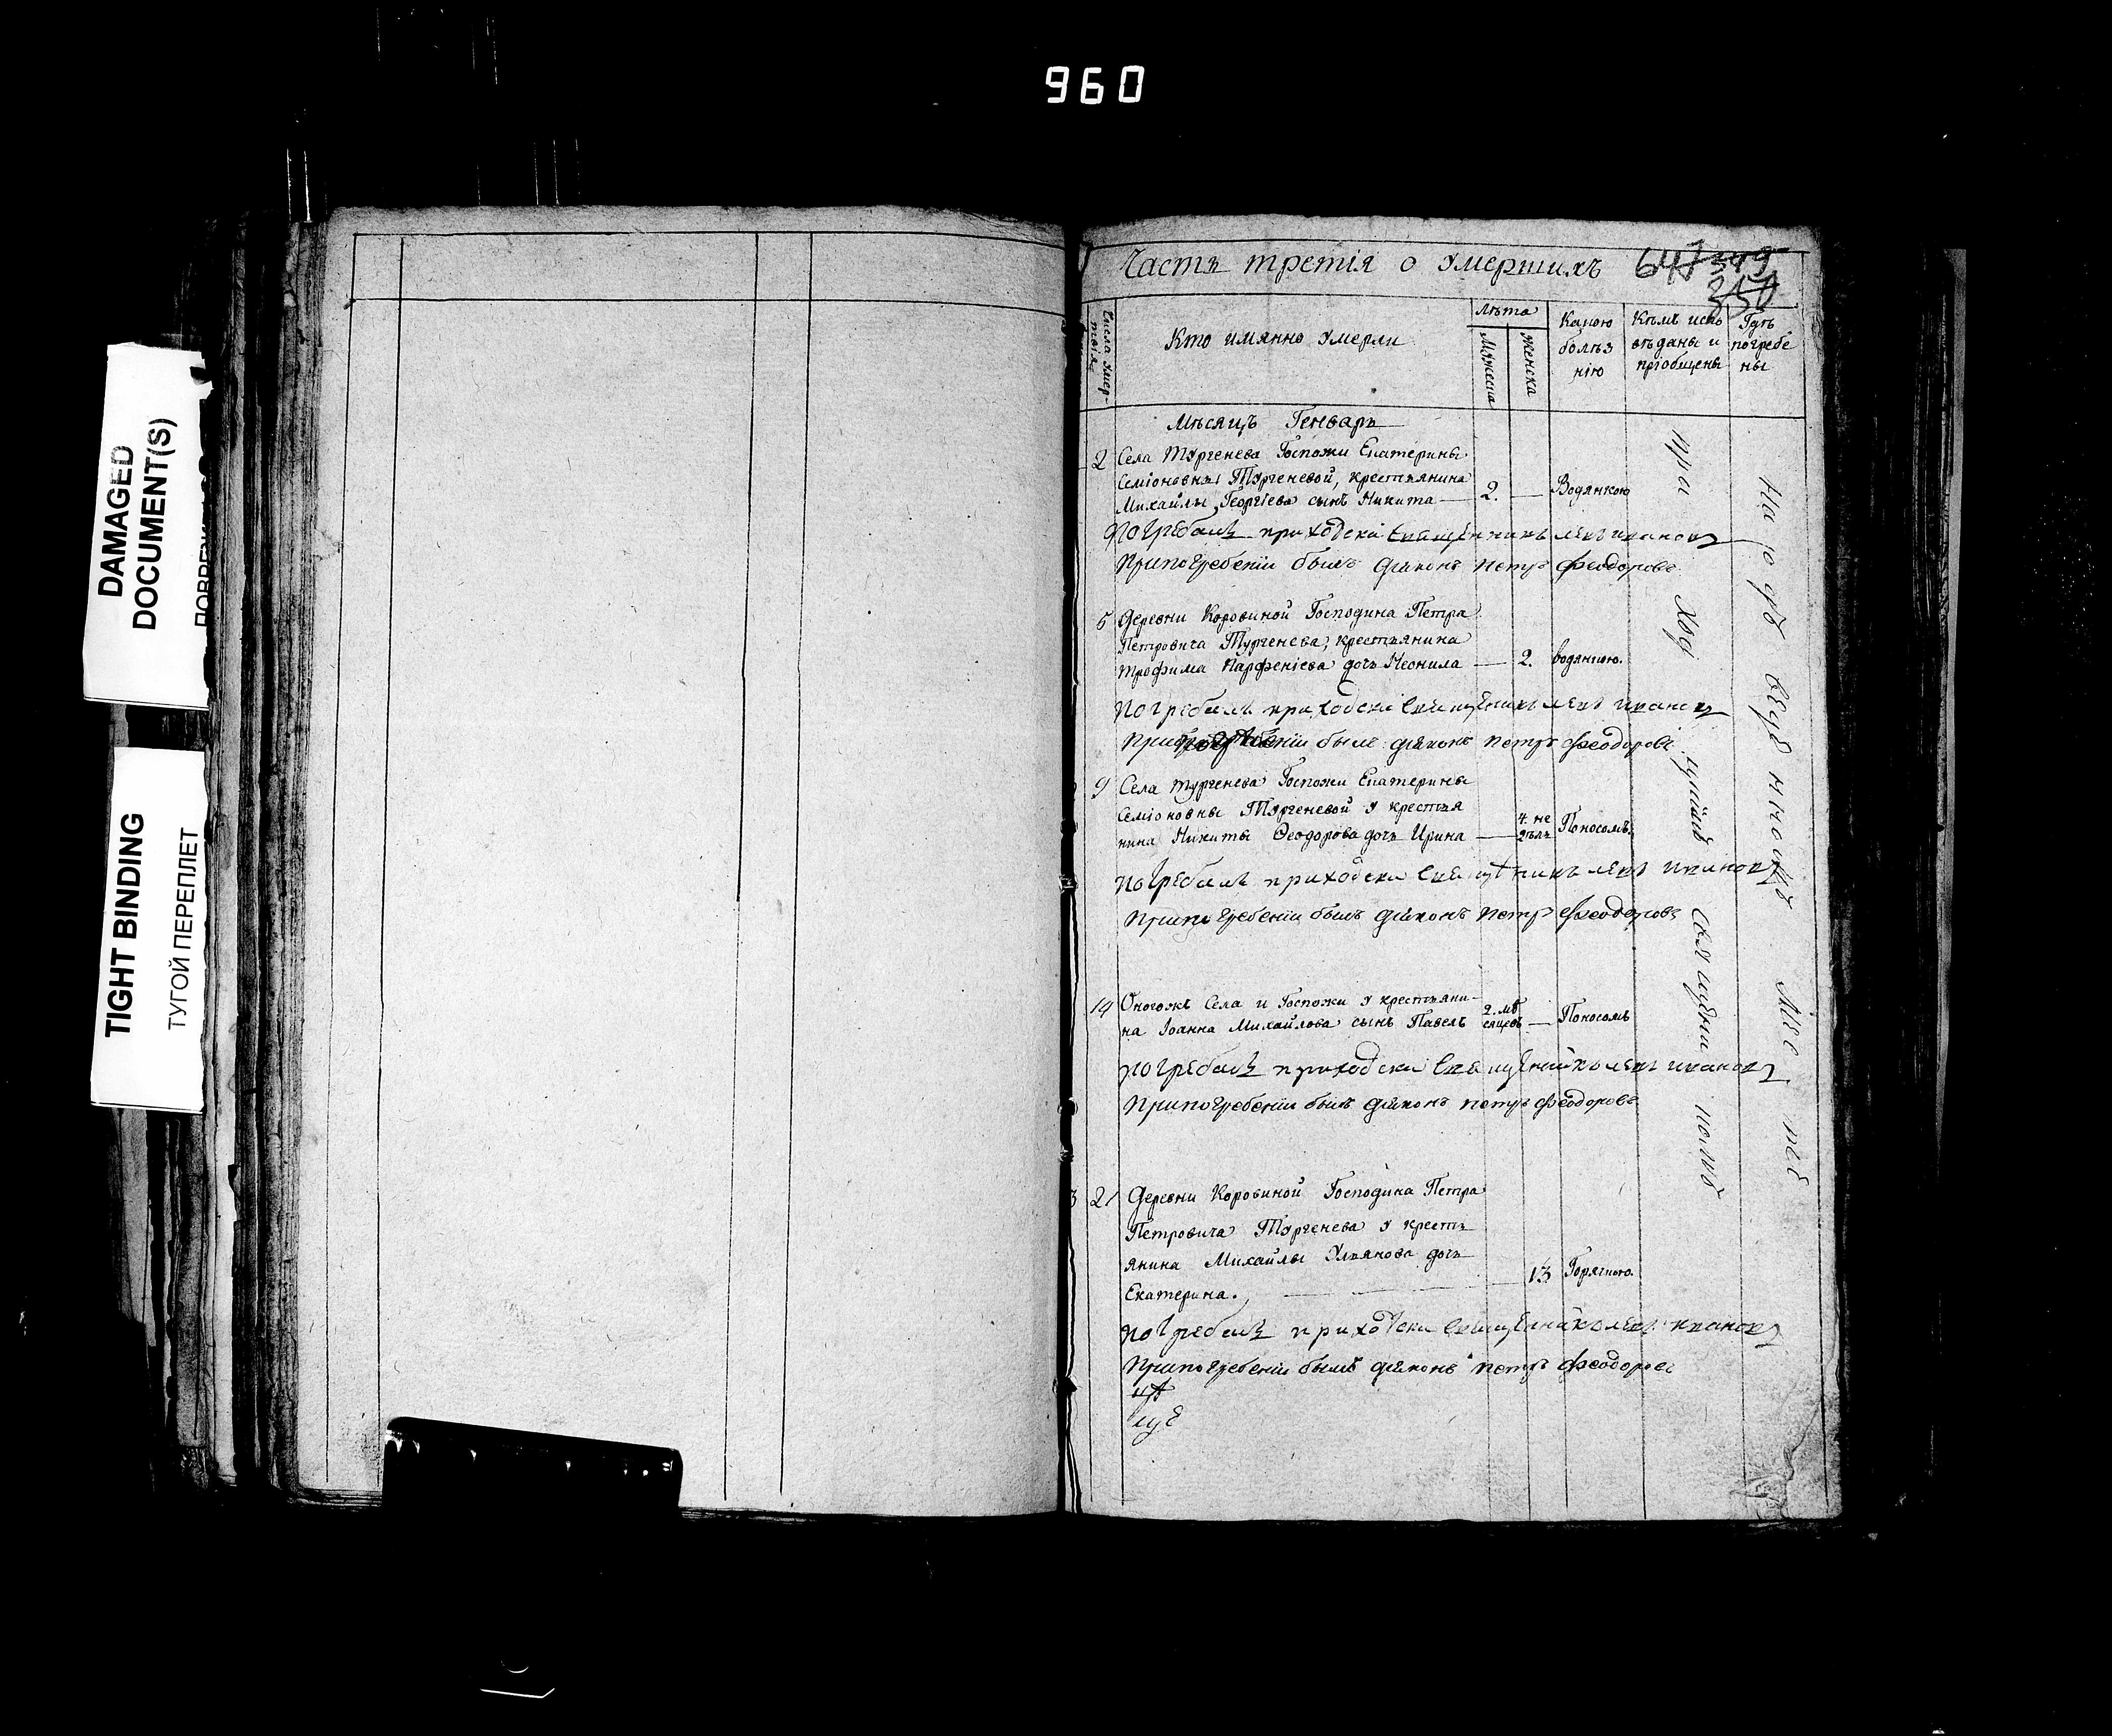 960
DAMAGED
DOCUMENT(S)
TIGHT BINDING
ТУГОЙ ПЕРЕПЛЕТ
Часть третія о умершихъ
647 349
350
Числа умер-
твія
Кто имянно умерли
Лѣта
Мужеска
Женска
Какою
болѣз
нію
Кѣмъ испо
вѣданы и
пріобщены
Гдѣ
погребе
ны
Мѣсяцъ Генварь
2 Села Тургенева Госпожи Екатерины
Семіоновны Тургеневой, крестьянина
Михайлы Георгіева сынъ Никита — 2. — Водянкою
Погребалъ приходски священникъ левъ ивановъ
При погребеніи былъ діаконъ петръ феодоровъ
5 Деревни Коровиной Господина Петра
Петровича Тургенева, крестьянина
Трофима Парфеніева дочь Неонила — 2. водянкою.
погребалъ приходски священикъ левъ ивановъ
При погребеніи былъ діаконъ петръ феодоровъ
9 Села тургенева Госпожи Екатерины
Семіоновны Тургеневой у крестья
нина Никиты Феодорова дочь Ирина — 4. не
дѣль Поносомъ
погребалъ приходски священникъ левъ ивановъ
При погребеніи былъ діаконъ петръ феодоровъ
14 Оногожъ Села и Госпожи у крестьяни-
на Іоанна Михайлова сынъ Павелъ 2. мѣ
сяцевъ — Поносомъ
погребалъ приходски священникъ левъ ивановъ
При погребеніи былъ діаконъ петръ феодоровъ
21 Деревни Коровиной Господина Петра
Петровича Тургенева у кресть
янина Михайлы Ульянова дочь
Екатерина. — 13 Горячкою.
погребалъ приходски священникъ левъ ивановъ
При погребеніи былъ діаконъ петръ феодоровъ
при ход